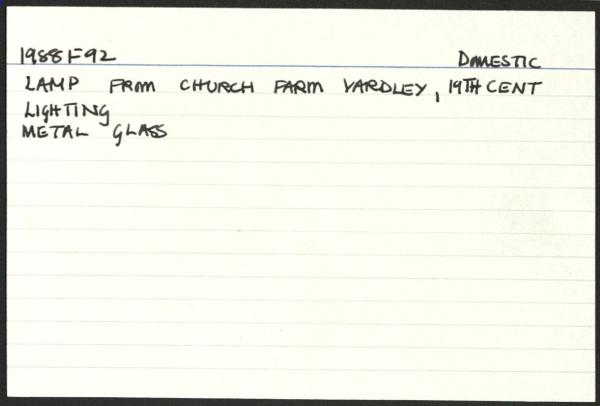 1988F92 DOMESTIC
LAMP FROM CHURCH FARM YARDLEY, 19TH CENT
LIGHTING
METAL GLASS